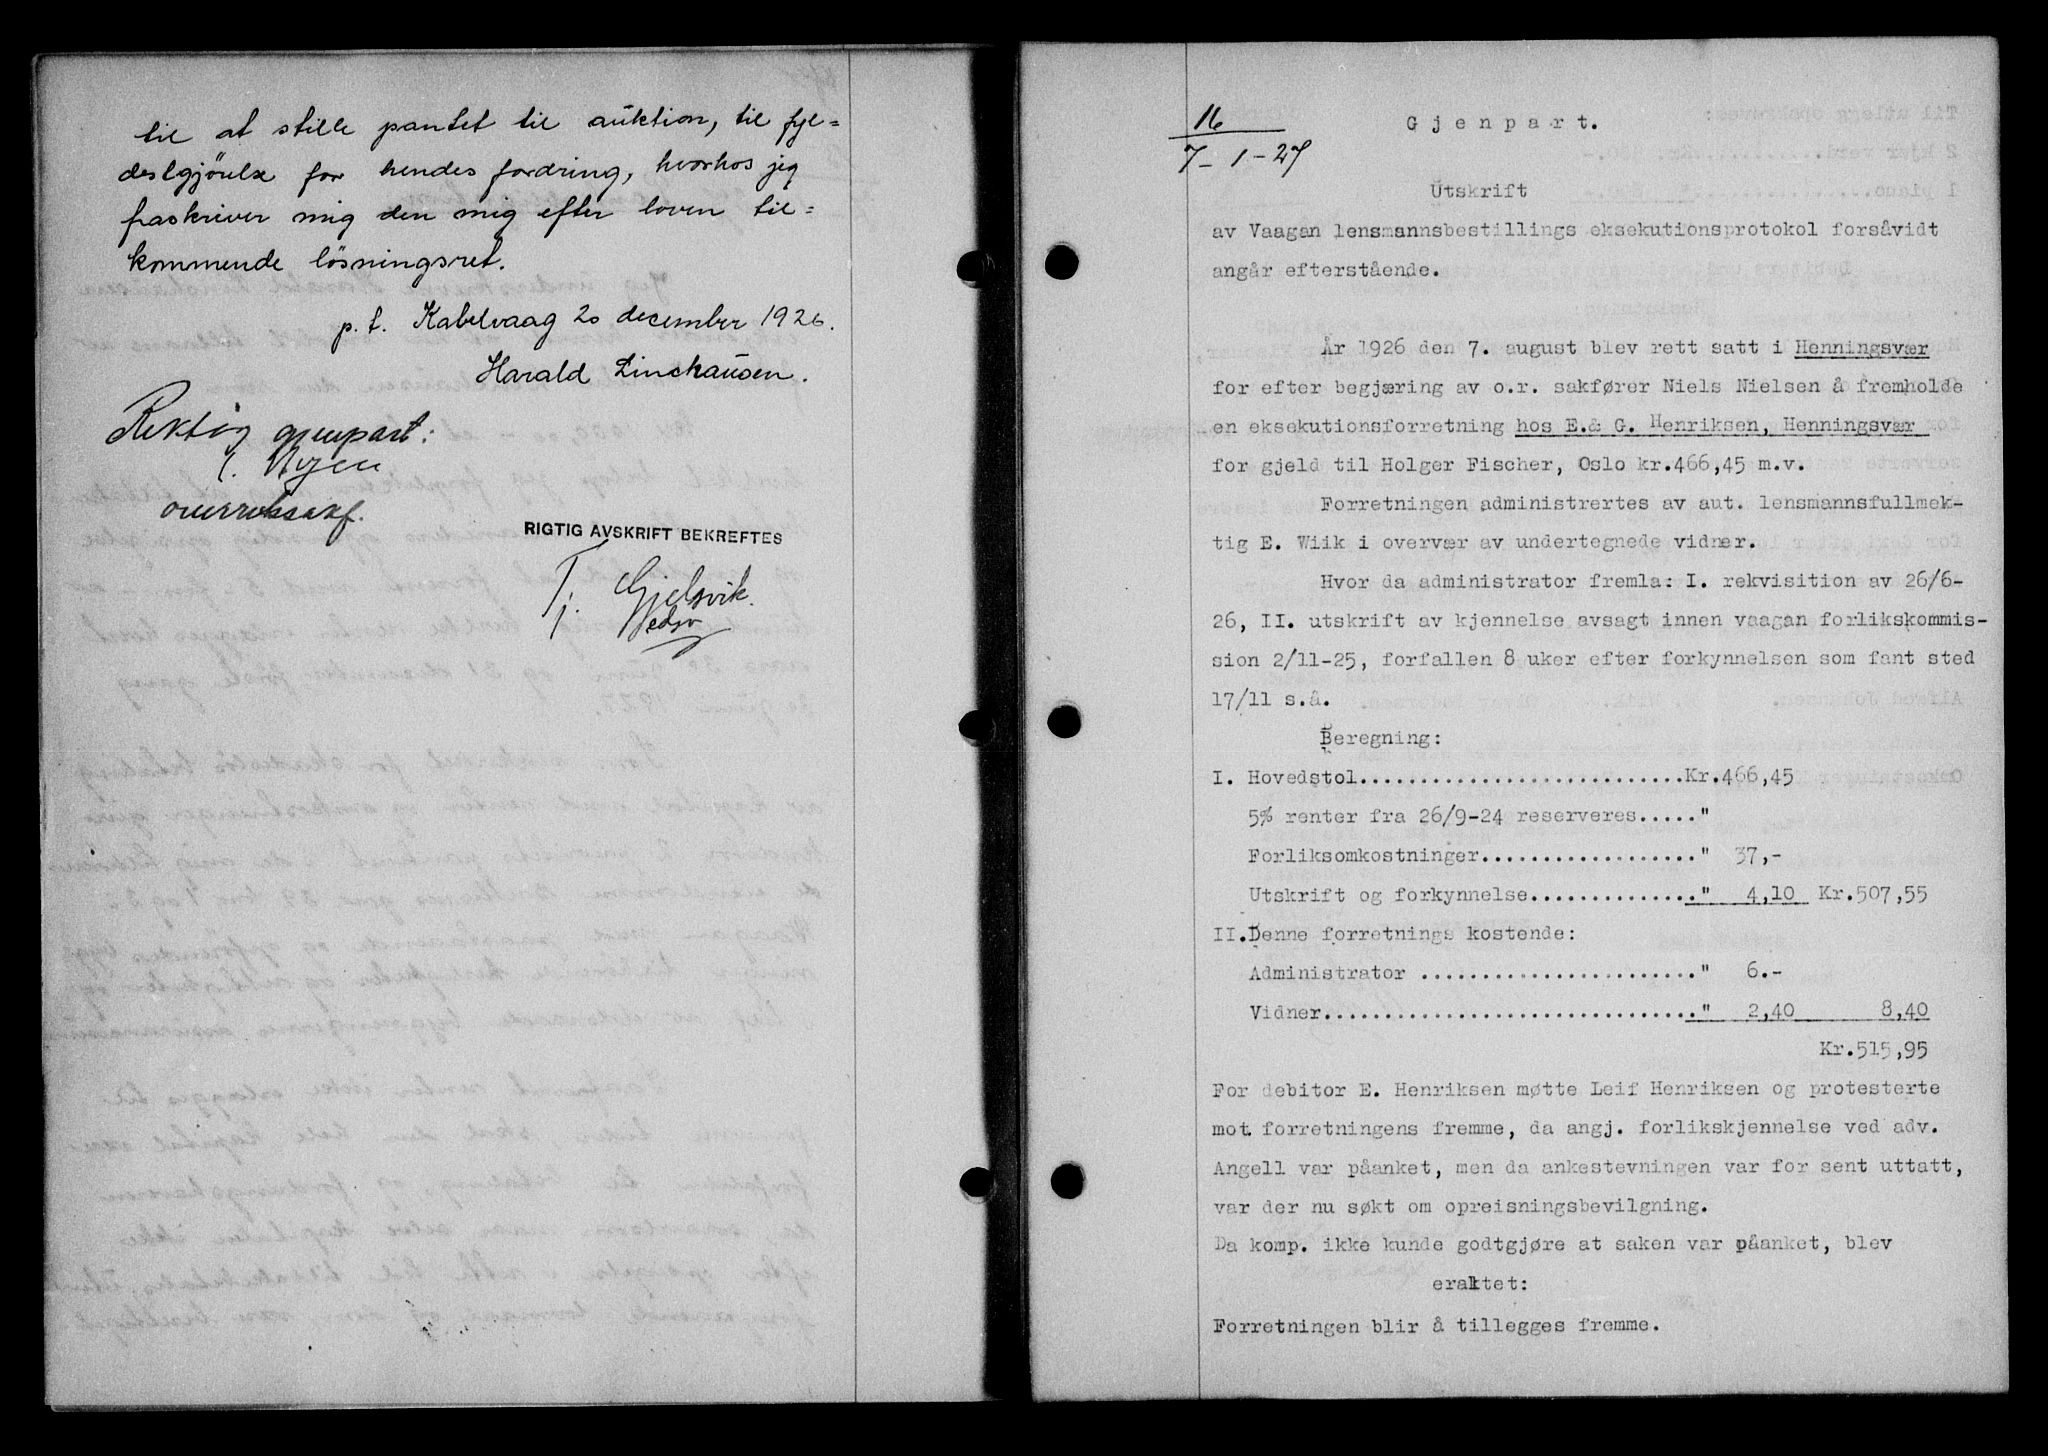 til at stille pantet til auktion, til fyl=
destgjörelse for hendes fordring, hvorhos jeg
fraskriver mig den mig efter loven til=
kommende lösningsret.
p. t. Kabelvaag 20 december 1926.
Harald Linchausen.
Riktig gjenpart:
overretssakf.
RIGTIG AVSKRIFT BEKREFTES
T. Gjelsvik.
16
7-1-27
Gjenpart.
Utskrift
av Vaagan lensmannsbestillings eksekutionsprotokol forsåvidt
angår efterstående.
År 1926 den 7. august blev rett satt i Henningsvær
for efter begjæring av o.r. sakfører Niels Nielsen å fremholde
en eksekutionsforretning hos E.& G. Henriksen, Henningsvær
for gjeld til Holger Fischer, Oslo kr.466,45 m.v.
Forretningen administrertes av aut. lensmannsfullmek-
tig E. Wiik i overvær av undertegnede vidner.
Hvor da administrator fremla: I. rekvisition av 26/6-
26, II. utskrift av kjennelse avsagt innen vaagan forlikskommis-
sion 2/11-25, forfallen 8 uker efter forkynnelsen som fant sted
17/11 s.å.
Beregning:
I. Hovedstol............................Kr.466,45
5% renter fra 26/9-24 reserveres....."
Forliksomkostninger..................." 37,-
Utskrift og forkynnelse..............." 4,10 Kr.507,55
II.Denne forretnings kostende:
Administrator ........................" 6.-
Vidner................................" 2,40 8,40
Kr.515,95
For debitor E. Henriksen møtte Leif Henriksen og protesterte
mot forretningens fremme, da angj. forlikskjennelse ved adv.
Angell var påanket, men da ankestevningen var for sent uttatt,
var der nu søkt om opreisningsbevilgning.
Da komp. ikke kunde godtgjøre at saken var påanket, blev
eraktet:
Forretningen blir å tillegges fremme.